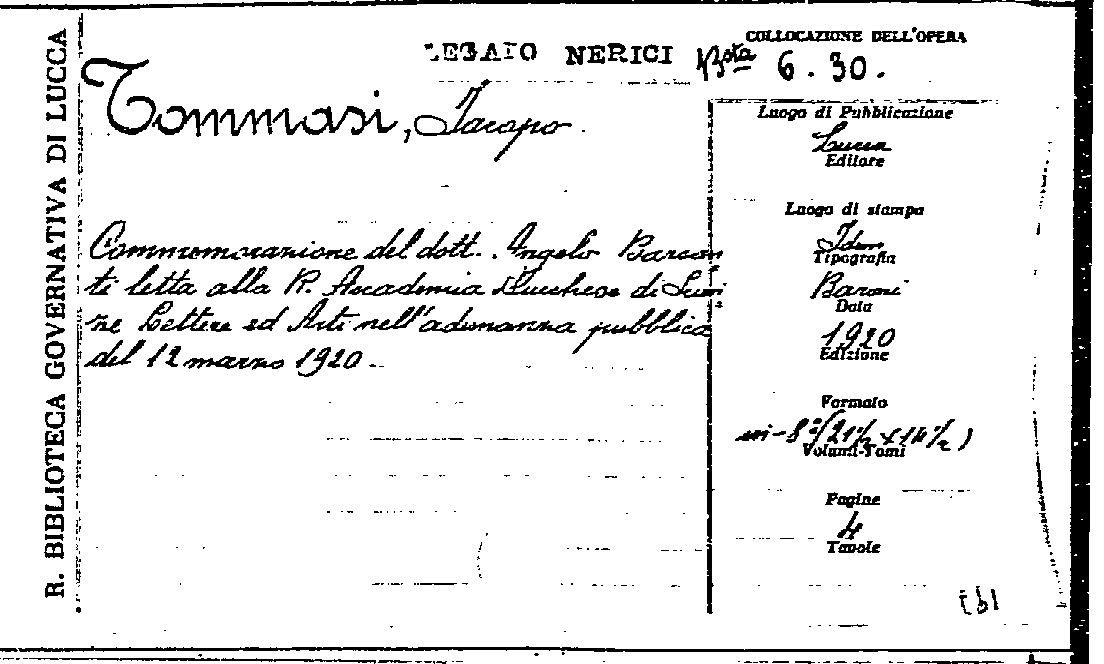 R. BIBLIOTECA GOVERNATIVA DI LUCCA
LEGATO NERICI
COLLOCAZIONE DELL'OPERA
Bsta 6.30.
Tommasi, Jacopo.
Commemorazione del dott. Angelo Barson
ti letta alla R. Accademia Lucchese di Scien
ze Lettere ed Arti nell'adunanza pubblica
del 12 marzo 1920.
Luogo di Pubblicazione
Lucca
Editore
Luogo di stampa
Idem
Tipografia
Baroni
Data
1920
Edizione
Formato
in-8° (21½ x 14½)
Volumi-Tomi
Pagine
4
Tavole